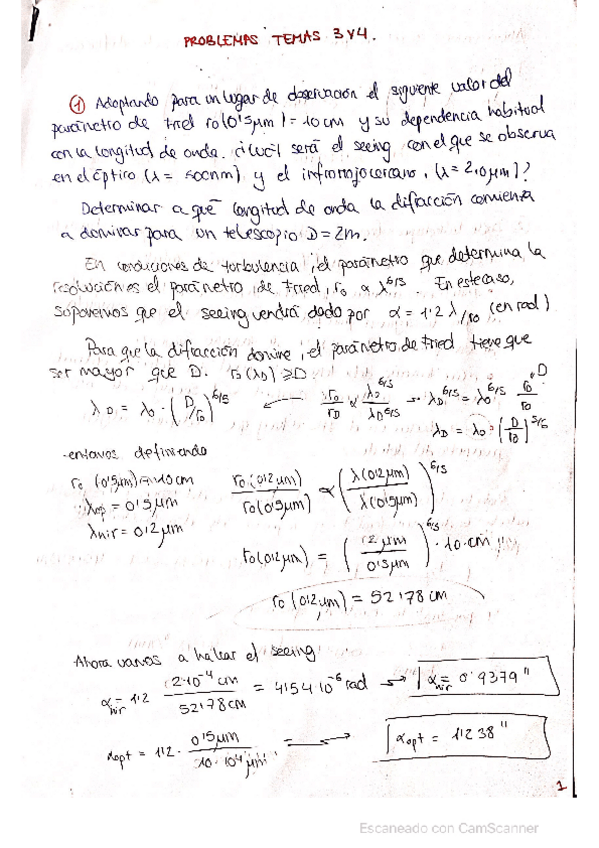 PROBLEMAS TEMAS 3 y 4.
① Adoptando para un lugar de observación el siguiente valor del
parámetro de Fried r₀(0'5μm) = 10cm y su dependencia habitual
con la longitud de onda. ¿Cuál será el seeing con el que se observa
en el óptico (λ = 500nm) y el infrarrojo cercano, (λ = 2,0μm)?
Determinar a qué longitud de onda la difracción comienza
a dominar para un telescopio D=2m.
En condiciones de turbulencia, el parámetro que determina la
resolución es el parámetro de Fried, r₀ ∝ λ^6/5. En este caso,
suponemos que el seeing vendrá dado por α = 1'2 λ/r₀ (en rad)
Para que la difracción domine, el parámetro de Fried tiene que
ser mayor que D. r₀(λD) ≥ D.
λD = λ₀ · (D/r₀)^6/5 ← r₀/rD ∝ λ₀^6/5 / λD^6/5 → λD^6/5 = λ₀^6/5 rD/r₀ "D
λD = λ₀ · (D/r₀)^5/6
entavos definiendo
r₀ (0'5μm) = 10cm
λop = 0'5μm
λnir = 0'2μm
r₀(0'2μm)/r₀(0'5μm) ∝ (λ(0'2μm)/λ(0'5μm))^6/5
r₀(0'2μm) = (2μm/0'5μm)^6/5 · 10·cm
r₀(0'2μm) = 52'78cm
Ahora vamos a hallar el seeing
αnir = 1'2 2·10⁻⁴cm/52'78cm = 4'54·10⁻⁶rad → αnir = 0'9379"
αopt = 1'2 · 0'5μm/10·10⁴μm → αopt = 1'238"
1
Escaneado con CamScanner